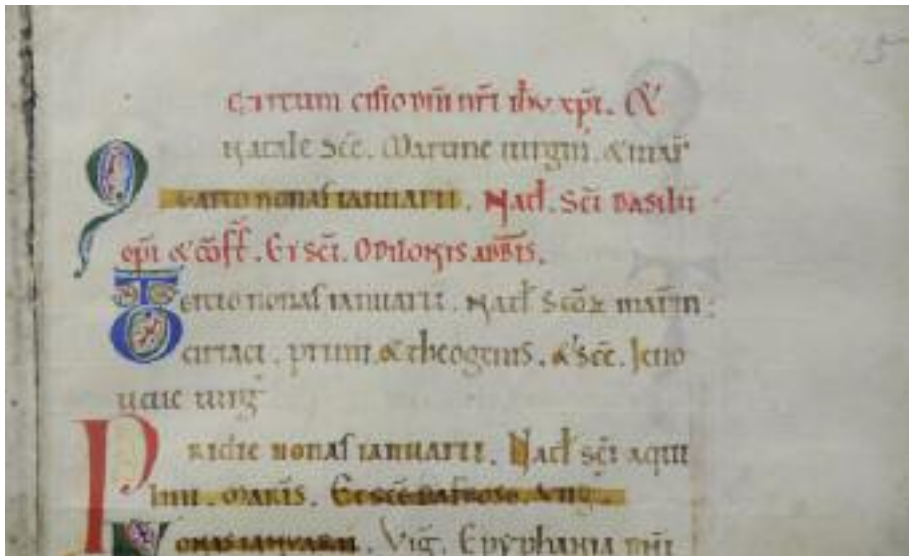 cumcisio dñi nr̃i ihu xp̃i. &
Natale Sc̃e. Martine uirgin̄. & mar̃
Quarto nonas ianuarii. Natł. Sc̃i Basilii
ep̃i & cōf̃. Et sc̃i. Odilonis abb̃is.
Tercio nonas ianuarii. Natł Sc̃oꝝ mar̃m
Ciriaci. primi. & theogenis. & sc̃e. Jeno
uefe uirg̃
Pridie nonas ianuarii. Natł sc̃i aqui
lini. Et sc̃e Dafrose. Virg̃.
Nonas ianuarii. Vig̃. Epyphania dñi